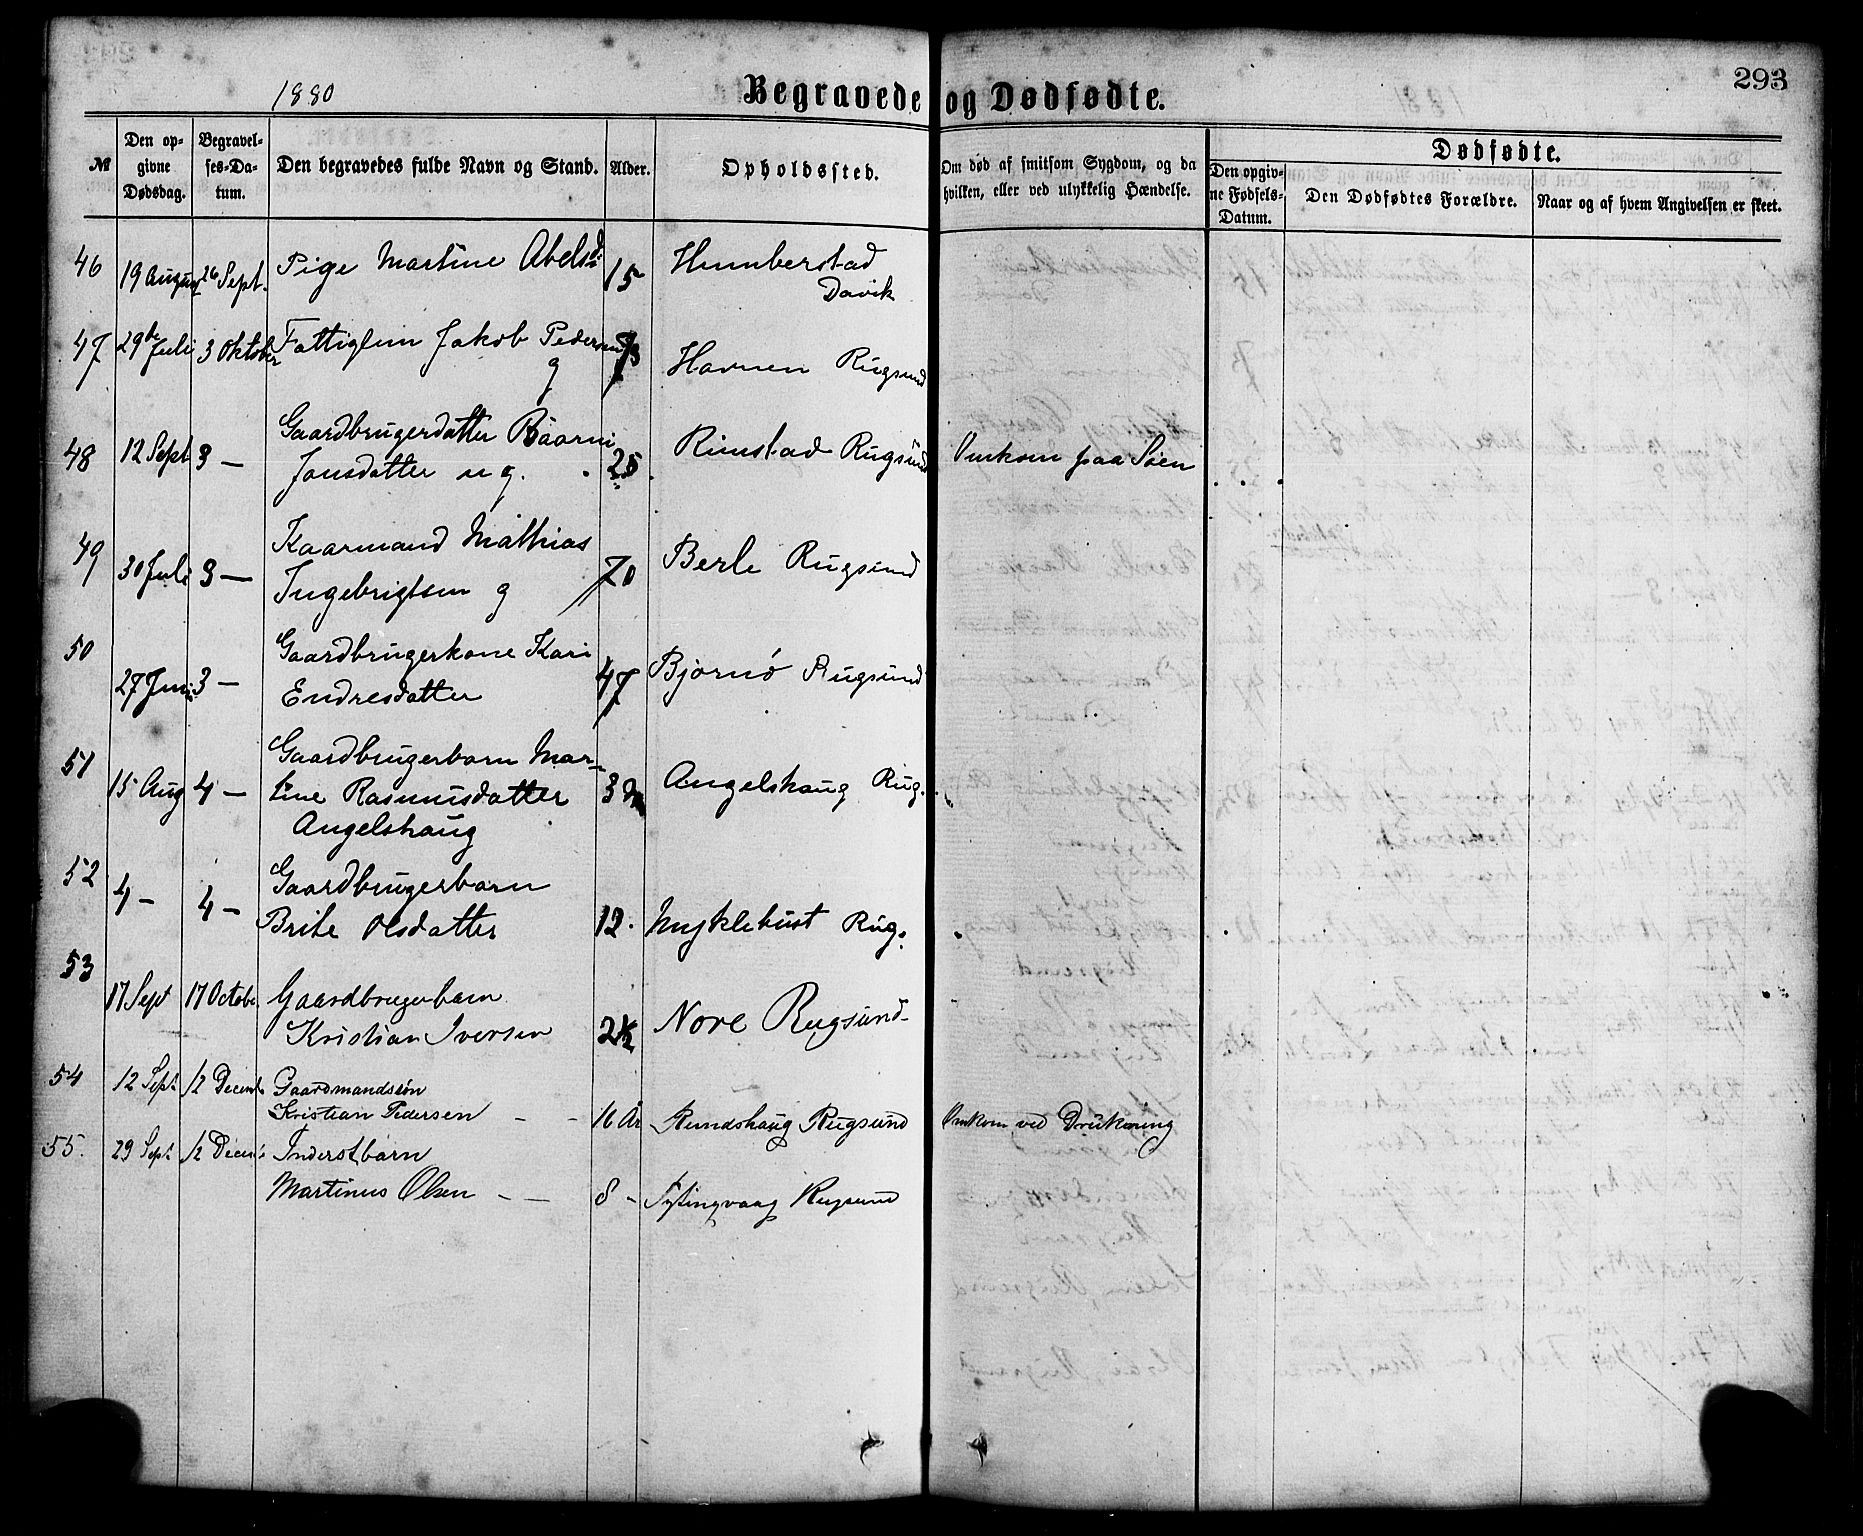 1880 Begravede og Dødfødte. 293
№ Den opgivne Dødsdag. Begravelses-Datum. Den begravedes fulde Navn og Stand. Alder. Opholdssted. Om død af smitsom Sygdom, og da hvilken, eller ved ulykkelig Hændelse. Dødfødte. Den opgivne Fødsels-Datum. Den Dødfødtes Forældre. Naar og af hvem Angivelsen er skeet.
46 19 August 26 Sept. Pige Martine Abelsd. 15 Humberstad
Davik
47 29de Juli 3 Oktober Fattiglem Jakob Pedersen 73 Havnen Rugsund
g
48 12 Sept 3 — Gaardbrugerdatter 25 Rimstad Rugsund Omkom paa Søen
Jonsdatter ug.
49 30 Juli 3 — Kaarmand Mathias 70 Berle Rugsund
Ingebrigtsen g
50 27 Juni 3 — Gaardbrugerkone Kari 47 Bjørnø Rugsund
Endresdatter
51 15 Aug 4 — Gaardbrugerbarn Mar- 3 Angelshaug Rug.
tine Rasmusdatter
Angelshaug
52 4 — 4 — Gaardbrugerbarn
Brite Olsdatter 12. Myklebust Rug.
53 17 Sept 17 October Gaardbrugerbarn
Kristian Iversen 2½ Nore Rugsund
54 12 Sept 12 Decemb Gaardmandssøn
Kristian Pedersen — — 16 År Rundshaug Rugsund Omkom ved Drukning
55. 29 Sept 12 Decemb Inderstbarn
Martinus Olsen — — 8 - Tytingvaag Rugsund